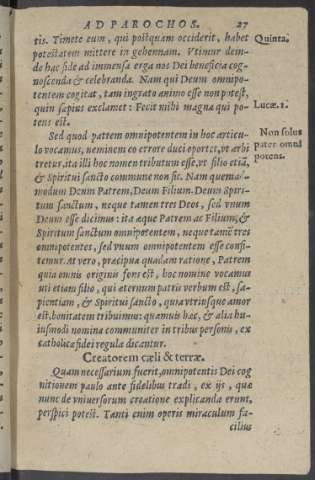 AD PAROCHOS. 27
tis. Timete eum, qui postquam occiderit, habet
potestatem mittere in gehennam. Vtimur dein-
de hac fide ad immensa erga nos Dei beneficia cog-
noscenda & celebranda. Nam qui Deum omnipo-
tentem cogitat, tam ingrato animo esse non potest,
quin sæpius exclamet: Fecit mihi magna qui po-
tens est.
Sed quod patrem omnipotentem in hoc articu-
lo vocamus, neminem eo errore duci oportet, vt arbi
tretur, ita illi hoc nomen tributum esse, vt filio etiã,
& Spiritui sancto commune non sit. Nam quemad-
modum Deum Patrem, Deum Filium, Deum Spiri-
tum sanctum, neque tamen tres Deos, sed vnum
Deum esse dicimus: ita æque Patrem ac Filium, &
Spiritum sanctum omnipotentem, neque tamẽ tres
omnipotentes, sed vnum omnipotentem esse confi-
temur. At vero, præcipua quadam ratione, Patrem
quia omnis originis fons est, hoc nomine vocamus
vti etiam filio, qui æternum patris verbum est, sa-
pientiam, & Spiritui sãcto, quia vtriusque amor
est, bonitatem tribuimus: quamuis hæc, & alia hu-
iusmodi nomina communiter in tribus personis, ex
catholicæ fidei regula dicantur.
Creatorem cæli & terræ.
Quam necessarium fuerit, omnipotentis Dei cog
nitionem paulo ante fidelibus tradi, ex ijs, quæ
nunc de vniuersorum creatione explicanda erunt,
perspici potest. Tanti enim operis miraculum fa-
cilius
Quinta.
Lucæ. 1.
Non solus
pater omni
potens.